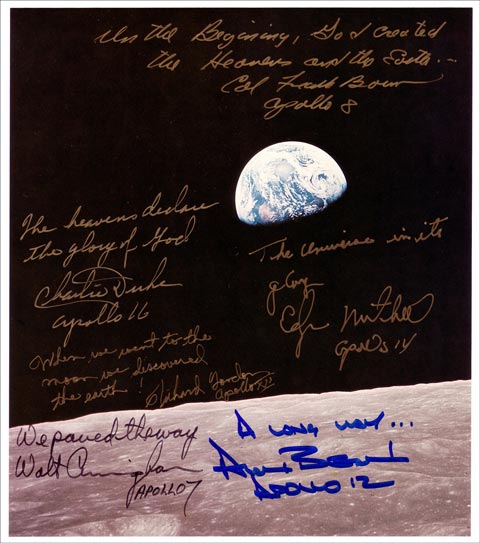 In the Beginning, God created
the Heavens and the Earth...
Col Frank Borman
Apollo 8
The heavens declare
the glory of God
Charlie Duke
Apollo 16
The universe in its
glory
Edgar Mitchell
Apollo 14
When we went to the
moon we discovered
the earth!
Richard Gordon
Apollo XII
We paved the way
Walt Cunningham
APOLLO 7
A LONG WAY...
Alan Bean
APOLLO 12